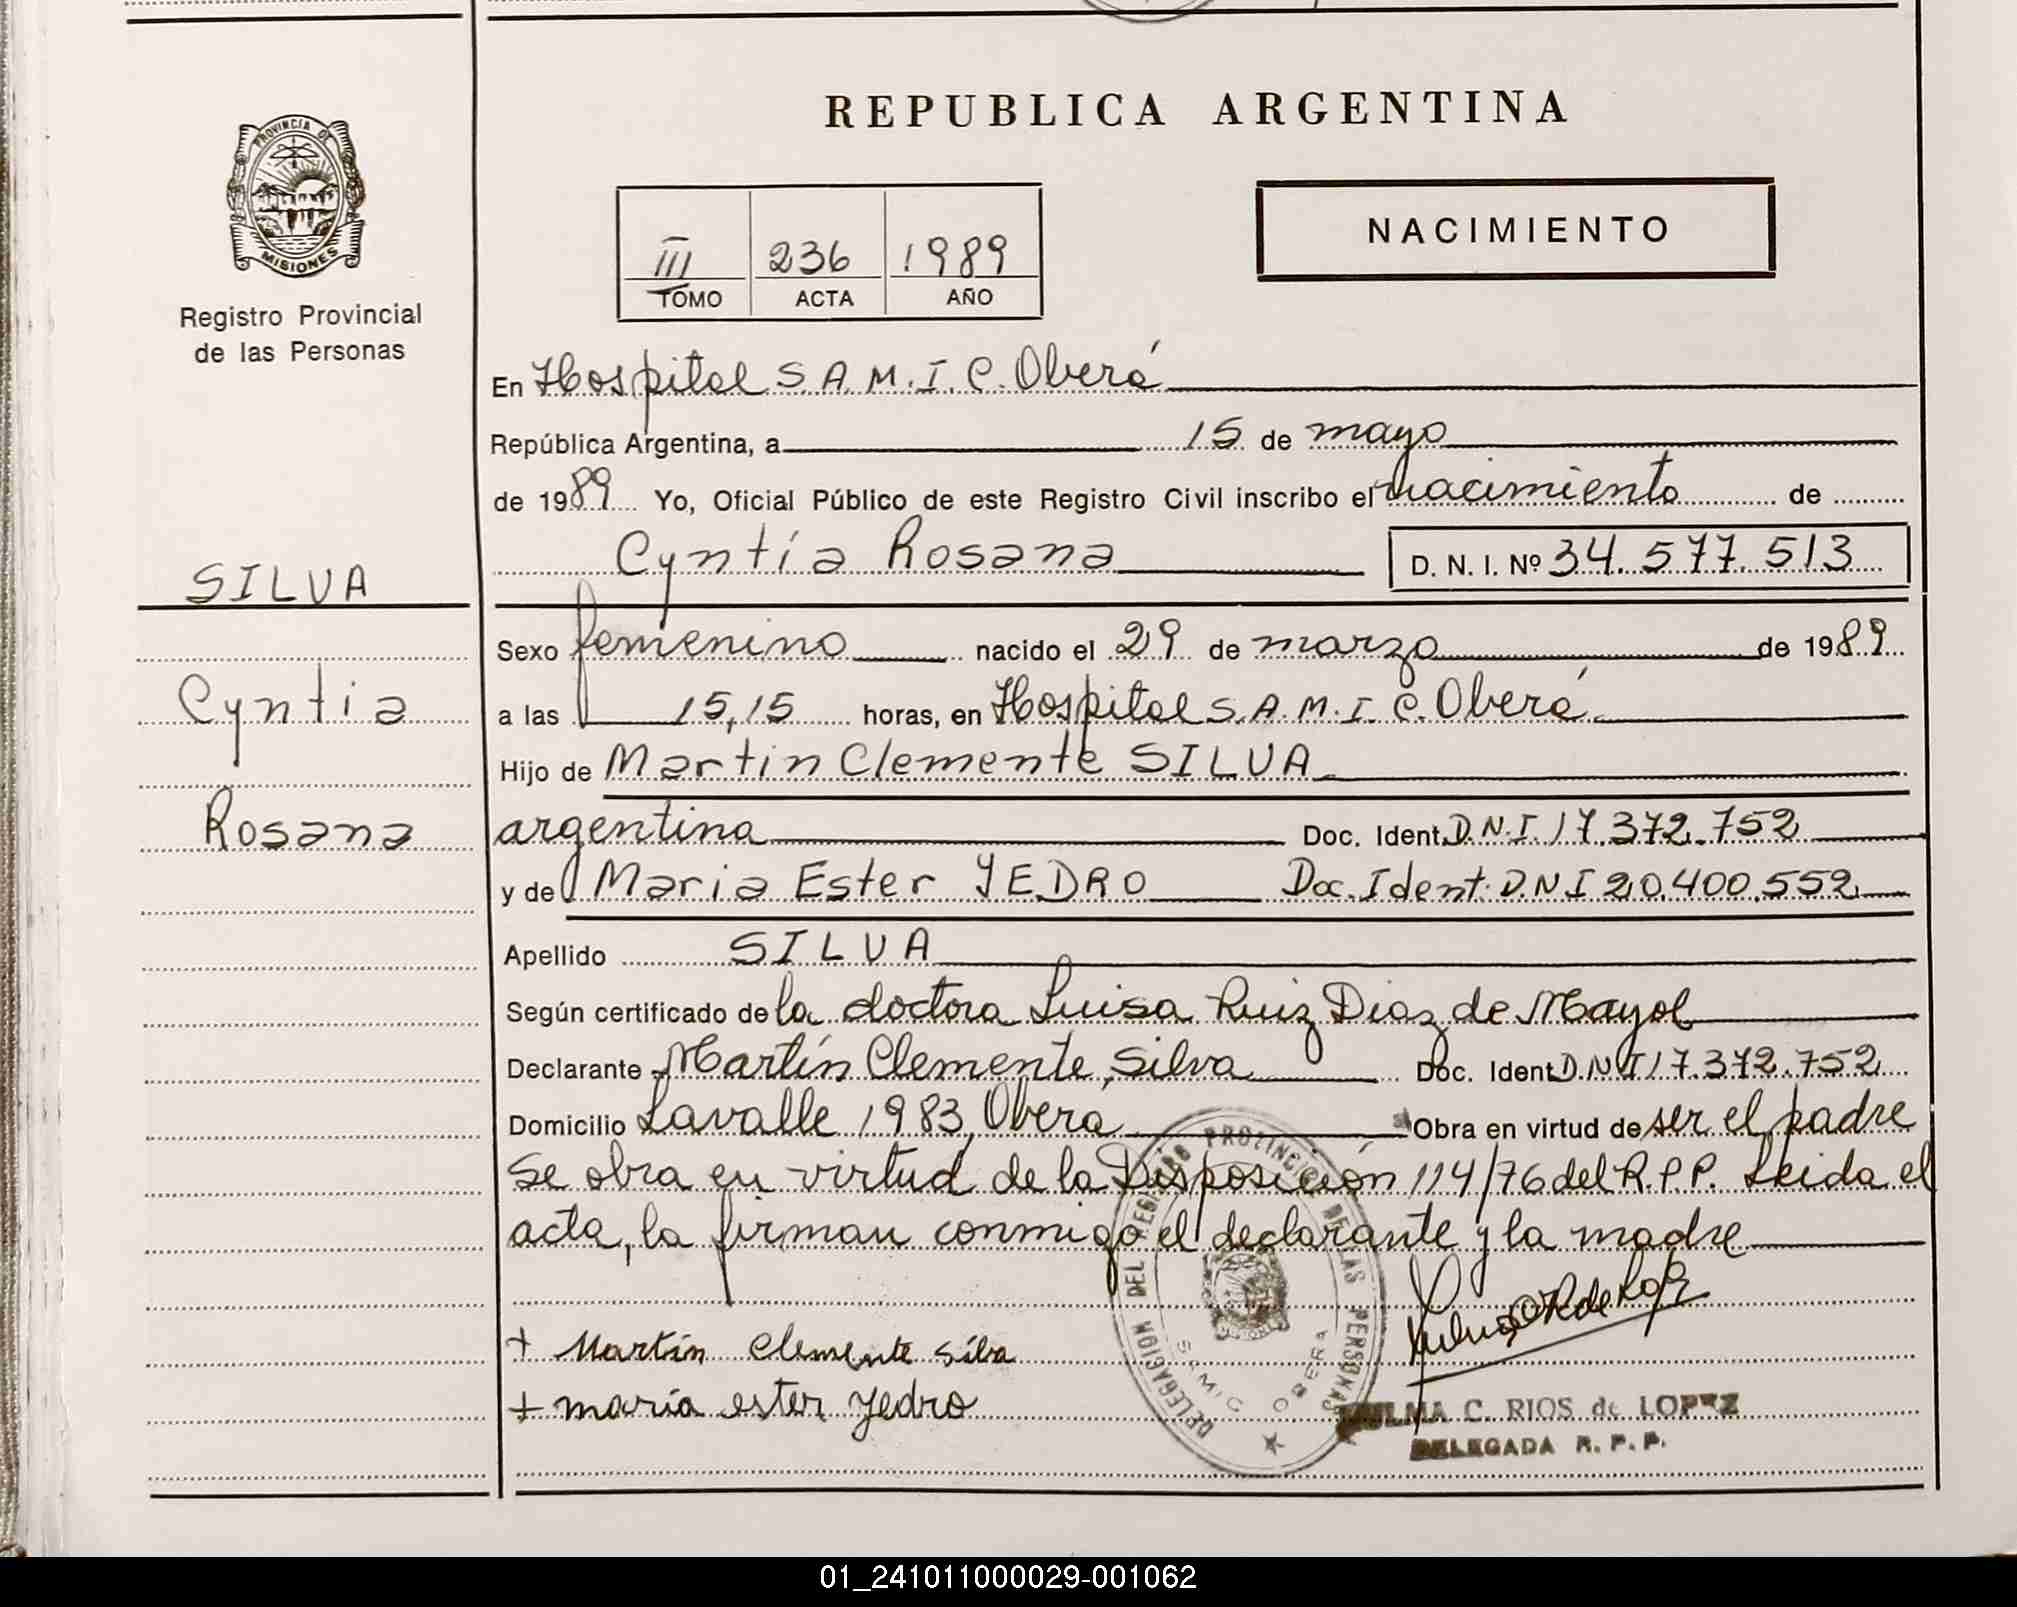 REPUBLICA ARGENTINA
PROVINCIA DE
MISIONES
Registro Provincial
de las Personas
III 236 1989
TOMO ACTA AÑO
NACIMIENTO
En Hospital S.A.M.I.C. Oberá
República Argentina, a 15 de mayo
de 1989 Yo, Oficial Público de este Registro Civil inscribo el nacimiento de
Cyntia Rosana D. N. I. Nº 34.577.513
SILVA
Cyntia
Rosana
Sexo femenino nacido el 29 de marzo de 1989
a las 15,15 horas, en Hospital S.A.M.I.C. Oberá
Hijo de Martin Clemente SILVA
argentina Doc. Ident. D.N.I. 17.372.752
y de Maria Ester YEDRO Doc. Ident: D.N.I 20.400.552
Apellido SILVA
Según certificado de la doctora Luisa Ruiz Diaz de Mayol
Declarante Martín Clemente Silva Doc. Ident D.N.I 17.372.752
Domicilio Lavalle 1983, Oberá Obra en virtud de ser el padre
Se obra en virtud de la Disposición 114/76 del R.P.P. Leida el
acta, la firman conmigo el declarante y la madre
+ Martín Clemente Silva
+ maría ester yedro
DELEGACION DEL REGISTRO PROVINCIAL DE LAS PERSONAS
SAMIC OBERA
C. RIOS de LOPEZ
DELEGADA R. P. P.
01_241011000029-001062